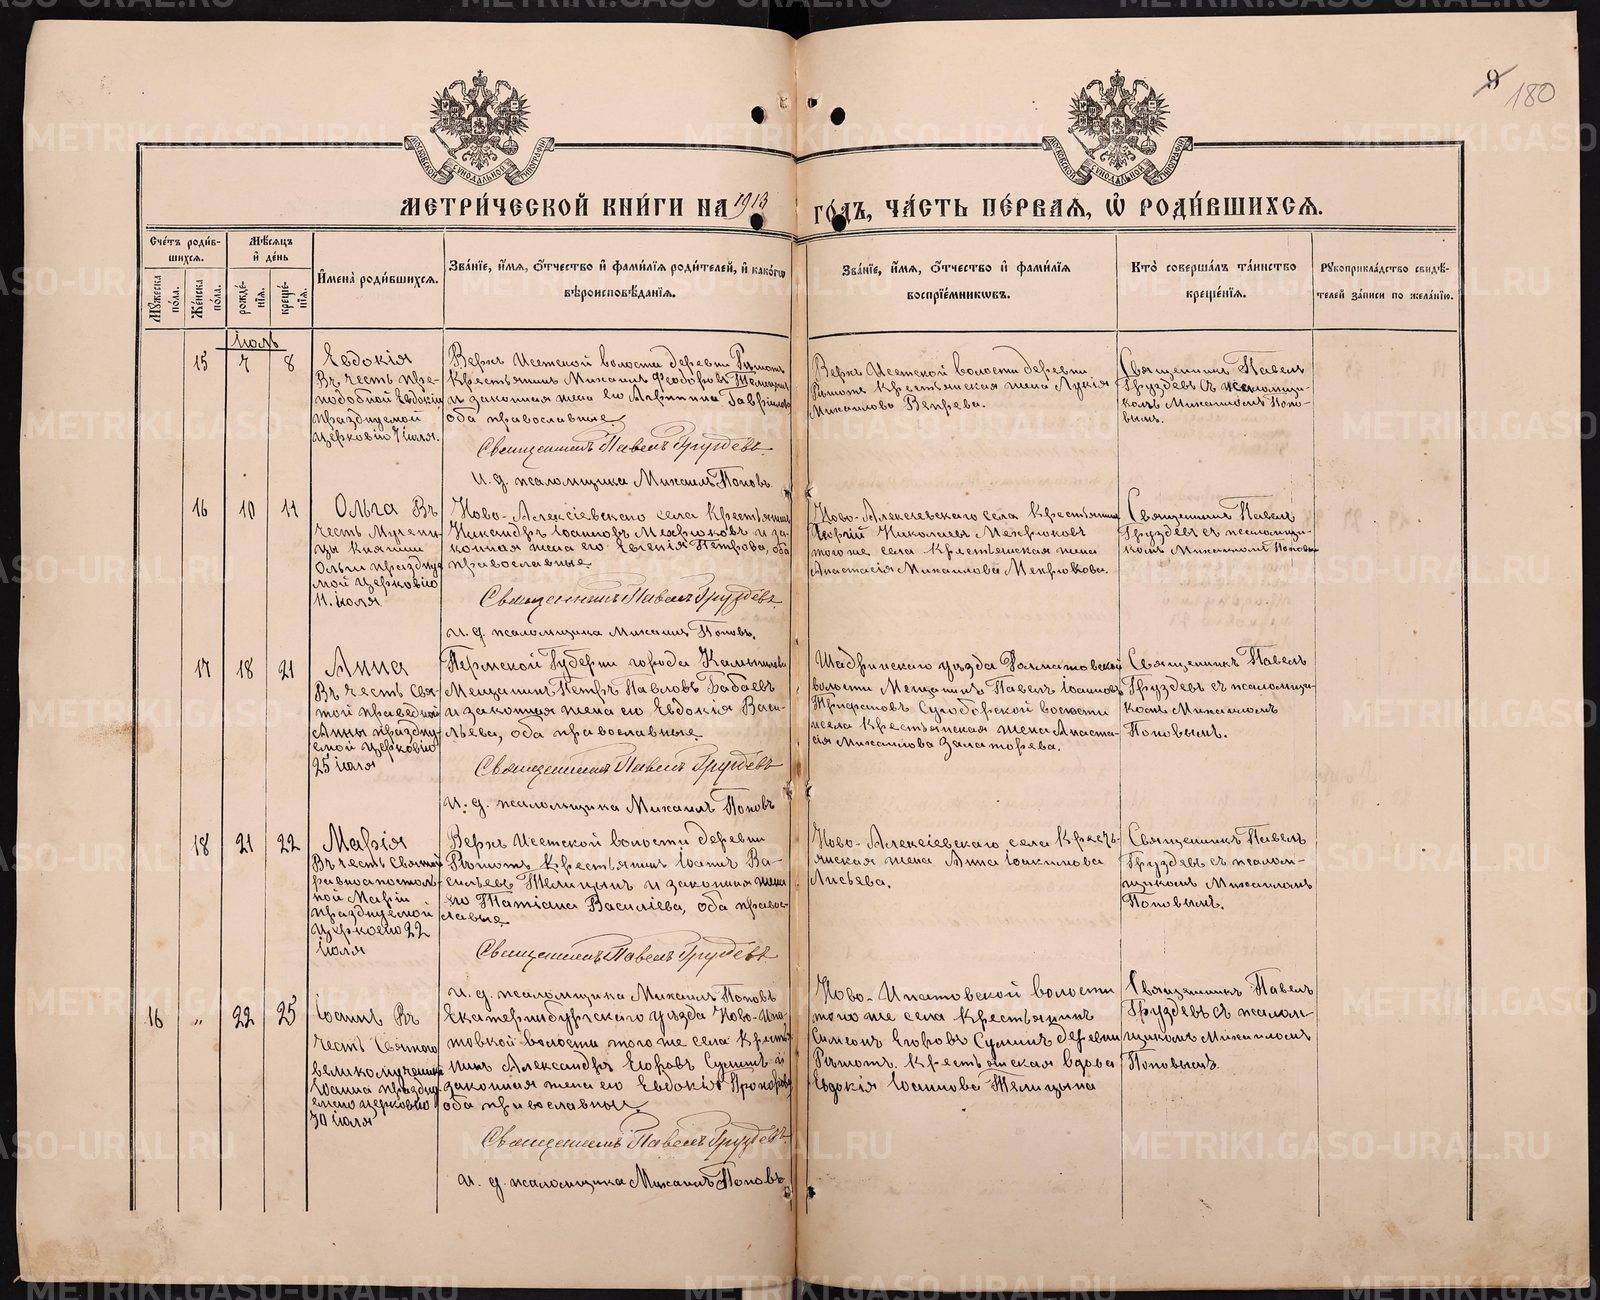 180
МЕТРИ́ЧЕСКОЙ КНИ́ГИ НА 1913 ГО́ДЪ, ЧА́СТЬ ПЕ́РВАЯ, Ѡ РОДИ́ВШИХСЯ.
Сче́тъ роди́вшихся.
Мѣ́сяцъ и҆ де́нь
И҆мена̀ роди́вшихся.
Зва́нїе, и҆́мя, ѻ҆́тчество и҆ фами́лїя роди́телей, и҆ како́гѡ вѣроисповѣ́данїя.
Зва́нїе, и҆́мя, ѻ҆́тчество и҆ фами́лїя воспрїе́мникѡвъ.
Кто̀ соверша́лъ та́инство креще́нїя.
Рꙋкоприкла́дство свидѣ́телей за́писи по жела́нїю.
Мꙋ́жеска по́ла.
Же́нска по́ла.
рожде́нїя.
креще́нїя.
Іюль
15 7 8
Евдокія
Въ честь пре-
подобной Евдокіи
празднуемой
церковію 7 іюля.
Верхъ Исетской волости деревни Рѣшотъ
Крестьянинъ Михаилъ Ѳеодоровъ Телицынъ
и законная жена его Агрипина Гавріилова
оба православные
Священникъ Павелъ Груздевъ
И. д. псаломщика Михаилъ Поповъ
Верхъ Исетской волости деревни
Рѣшотъ крестьянская жена Лукія
Михаилова Вепрева.
Священникъ Павелъ
Груздевъ съ псаломщи-
комъ Михаиломъ Попо-
вымъ.
16 10 11
Ольга Въ
честь Мучени-
цы Княгини
Ольги празднуе
мой церковію
11 іюля
Ново-Алексіевскаго села Крестьянинъ
Никандръ Іоанновъ Мокрюковъ и за-
конная жена его Евгенія Петрова, оба
православные
Священникъ Павелъ Груздевъ
И. д. псаломщика Михаилъ Поповъ.
Ново-Алексіевскаго села Крестьянинъ
Георгій Николаевъ Мокрюковъ
того же села Крестьянская жена
Анастасія Михаилова Мокрюкова.
Священникъ Павелъ
Груздевъ съ псаломщи-
комъ Михаиломъ Поповымъ
17 18 21
Анна
Въ честь Свя-
той праведной
Анны праздну-
емой церковію
25 іюля
Пермской Губерніи города Камышлова
Мещанинъ Петръ Павловъ Бабаевъ
и законная жена его Евдокія Васи-
льева, оба православные
Священникъ Павелъ Груздевъ
И. д. псаломщика Михаилъ Поповъ
Шадринскаго уѣзда Далматовской
волости Мещанинъ Павелъ Іоанновъ
Трифановъ Сухоборской волости
села Крестьянская жена Анаста-
сія Михаилова Залаторева.
Священникъ Павелъ
Груздевъ съ псаломщи-
комъ Михаиломъ
Поповымъ.
18 21 22
Марія
Въ честь Святой
равноапостоль-
ной Маріи
празднуемой
церковію 22
іюля
Верхъ Исетской волости деревни
Рѣшотъ Крестьянинъ Іоаннъ Ва-
сильевъ Телицынъ и законная жена
его Татіана Василіева, оба право-
славные
Священникъ Павелъ Груздевъ
И. д. псаломщика Михаилъ Поповъ
Ново-Алексіевскаго села Кресть-
янская жена Анна Іоакимова
Лисьева.
Священникъ Павелъ
Груздевъ съ псалом-
щикомъ Михаиломъ
Поповымъ.
16 " 22 25
Іоаннъ Въ
честь Святого
великомученика
Іоанна праздну-
емаго церковію
30 іюля
Екатеринбургскаго уѣзда Ново-Ипа-
товской волости того же села Кресть-
нинъ Александръ Егоровъ Сулинъ и
законная жена его Евдокія Прохорова
оба православные
Священникъ Павелъ Груздевъ
И. д. псаломщика Михаилъ Поповъ
Ново-Ипатовской волости
того же села крестьянинъ
Симеонъ Егоровъ Сулинъ деревни
Рѣшотъ. Крестьянская вдова
Евдокія Іоаннова Телицына
Священникъ Павелъ
Груздевъ съ псалом-
щикомъ Михаиломъ
Поповымъ.
METRIKI.GASO-URAL.RU